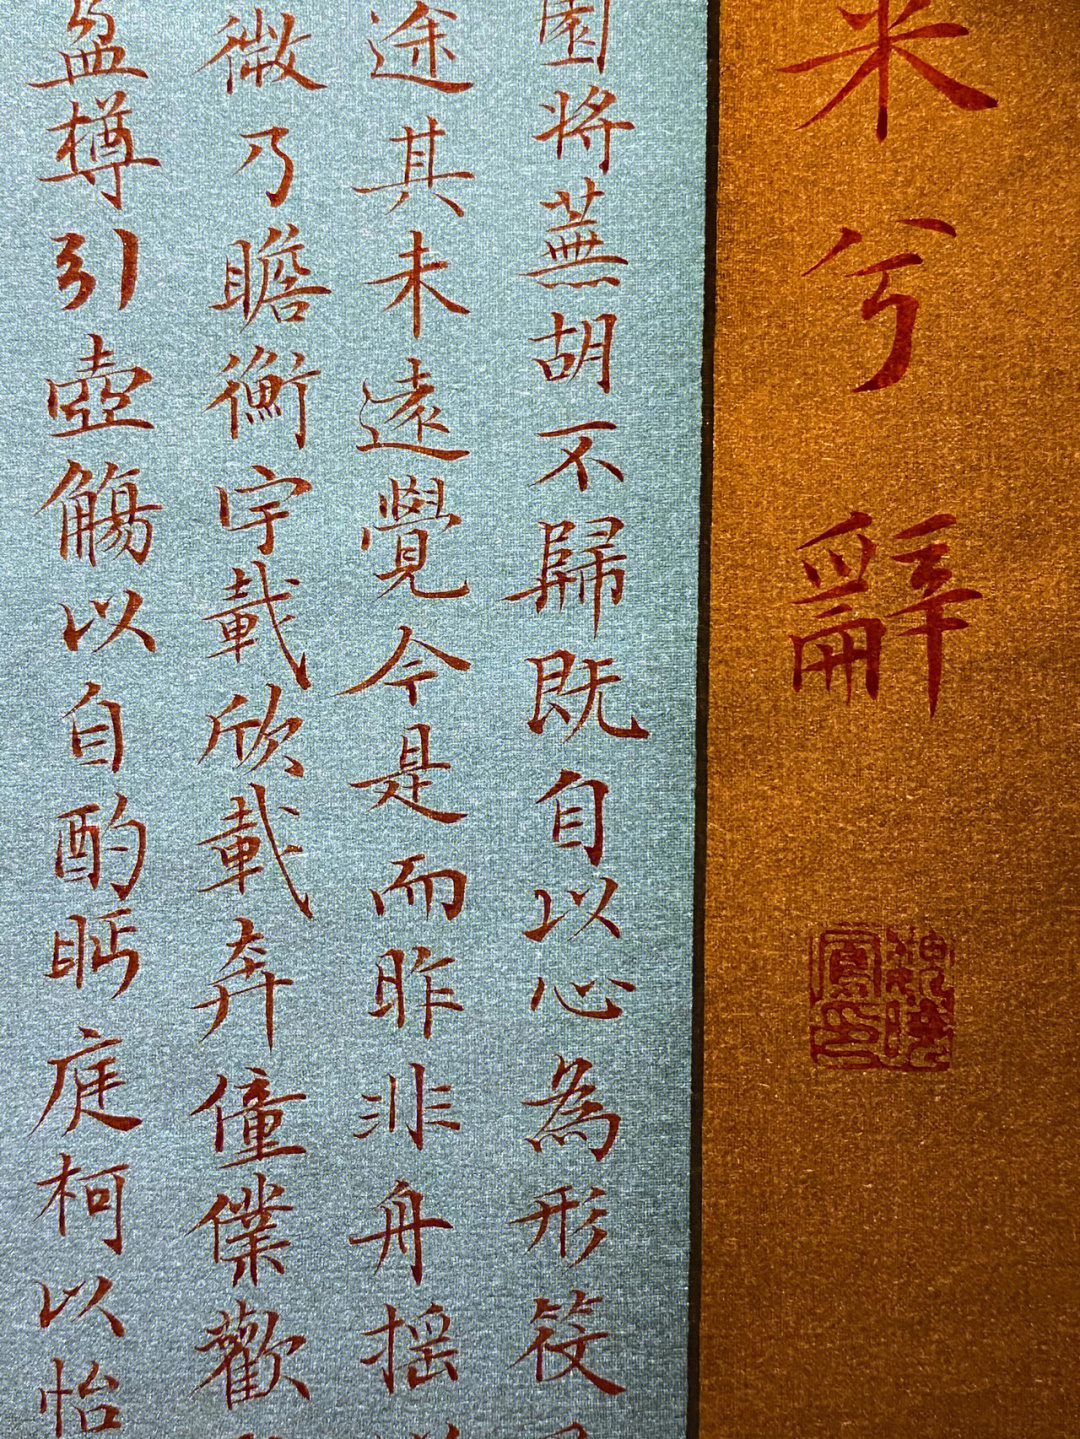 來兮辭
園將蕪胡不歸既自以心為形役
途其未遠覺今是而昨非舟搖
微乃瞻衡宇載欣載奔僮僕歡
盈樽引壺觴以自酌眄庭柯以怡